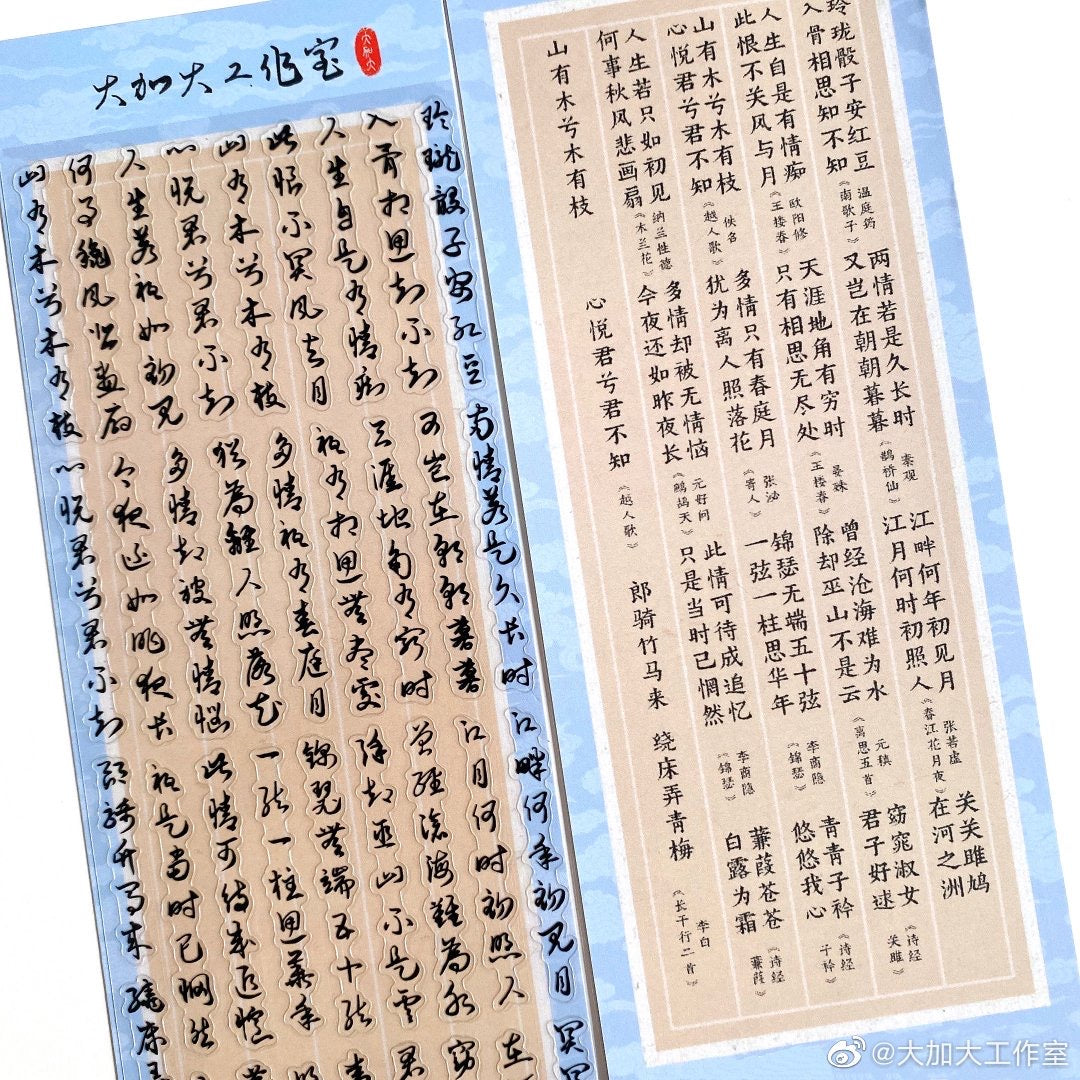 大加大工作室
大加大
玲瓏骰子安红豆
入骨相思知不知
人生自是有情痴
此恨不関风与月
山有木兮木有枝
心悦君兮君不知
人生若祇如初见
何事秋风悲画扇
山有木兮木有枝
两情若是久长时
又岂在朝朝暮暮
天涯地角有穷时
祇有相思無尽处
多情祇有春庭月
犹為離人照落花
多情却被無情恼
今夜还如昨夜长
心悦君兮君不知
江畔何年初见月
江月何时初照人
曾经滄海難為水
除却巫山不是雲
锦瑟無端五十弦
一弦一柱思華年
此情可待成追憶
祇是当时已惘然
郎骑竹马来
绕床
玲珑骰子安红豆
入骨相思知不知
温庭筠
《南歌子》
人生自是有情痴
此恨不关风与月
欧阳修
《玉楼春》
山有木兮木有枝
心悦君兮君不知
佚名
《越人歌》
人生若只如初见
何事秋风悲画扇
纳兰性德
《木兰花》
山有木兮木有枝
两情若是久长时
又岂在朝朝暮暮
秦观
《鹊桥仙》
天涯地角有穷时
只有相思无尽处
晏殊
《玉楼春》
多情只有春庭月
犹为离人照落花
张泌
《寄人》
多情却被无情恼
今夜还如昨夜长
元好问
《鹧鸪天》
心悦君兮君不知
《越人歌》
江畔何年初见月
江月何时初照人
张若虚
《春江花月夜》
曾经沧海难为水
除却巫山不是云
元稹
《离思五首》
锦瑟无端五十弦
一弦一柱思华年
李商隐
《锦瑟》
此情可待成追忆
只是当时已惘然
李商隐
《锦瑟》
郎骑竹马来
绕床弄青梅
李白
《长干行二首》
关关雎鸠
在河之洲
窈窕淑女
君子好逑
《诗经
关雎》
青青子衿
悠悠我心
《诗经
子衿》
蒹葭苍苍
白露为霜
《诗经
蒹葭》
@大加大工作室